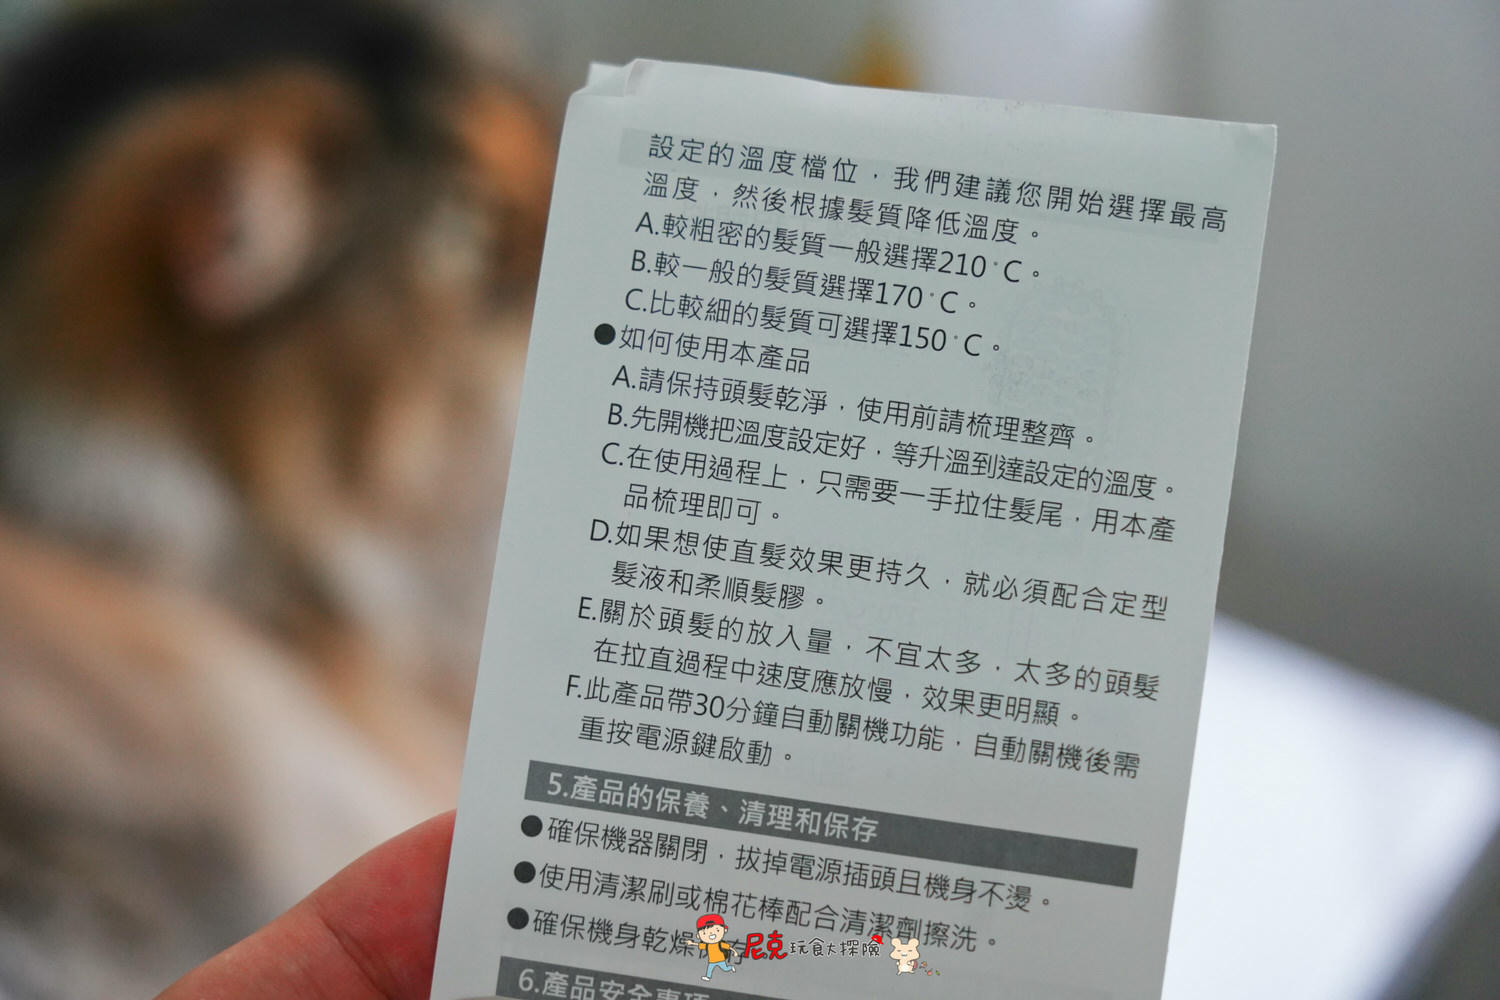 設定的溫度檔位，我們建議您開始選擇最高
溫度，然後根據髮質降低溫度。
A.較粗密的髮質一般選擇210°C。
B.較一般的髮質選擇170°C。
C.比較細的髮質可選擇150°C。
●如何使用本產品
A.請保持頭髮乾淨，使用前請梳理整齊。
B.先開機把溫度設定好，等升溫到達設定的溫度。
C.在使用過程上，只需要一手拉住髮尾，用本產
品梳理即可。
D.如果想使直髮效果更持久，就必須配合定型
髮液和柔順髮膠。
E.關於頭髮的放入量，不宜太多，太多的頭髮
在拉直過程中速度應放慢，效果更明顯。
F.此產品帶30分鐘自動關機功能，自動關機後需
重按電源鍵啟動。
5.產品的保養、清理和保存
●確保機器關閉，拔掉電源插頭且機身不燙。
●使用清潔刷或棉花棒配合清潔劑擦洗。
●確保機身乾燥
尼克玩食大探險
6.產品安全事項